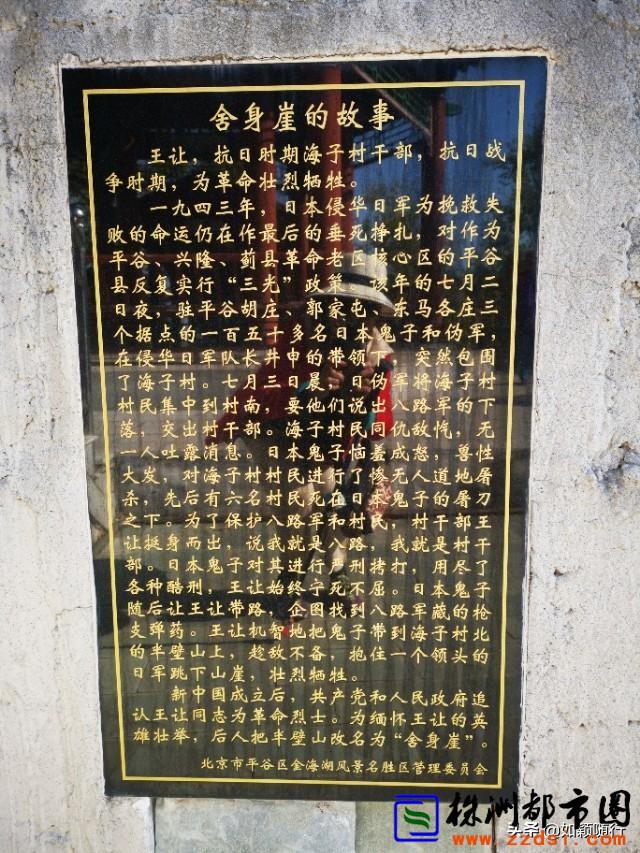 舍身崖的故事
王让，抗日时期海子村干部，抗日战
争时期，为革命壮烈牺牲。
一九四三年，日本侵华日军为挽救失
败的命运仍在作最后的垂死挣扎，对作为
平谷、兴隆、蓟县革命老区核心区的平谷
县反复实行“三光”政策。该年的七月二
日夜，驻平谷胡庄、郭家屯、东马各庄三
个据点的一百五十多名日本鬼子和伪军，
在侵华日军队长井中的带领下，突然包围
了海子村。七月三日晨，日伪军将海子村
村民集中到村南，要他们说出八路军的下
落，交出村干部。海子村民同仇敌忾，无
一人吐露消息。日本鬼子恼羞成怒，兽性
大发，对海子村村民进行了惨无人道地屠
杀，先后有六名村民死在日本鬼子的屠刀
之下。为了保护八路军和村民，村干部王
让挺身而出，说我就是八路，我就是村干
部。日本鬼子对其进行严刑拷打，用尽了
各种酷刑，王让始终宁死不屈。日本鬼子
随后让王让带路，企图找到八路军藏的枪
支弹药。王让机智地把鬼子带到海子村北
的半壁山上，趁敌不备，抱住一个领头的
日军跳下山崖，壮烈牺牲。
新中国成立后，共产党和人民政府追
认王让同志为革命烈士。为缅怀王让的英
雄壮举，后人把半壁山改名为“舍身崖”。
北京市平谷区金海湖风景名胜区管理委员会
株洲都市圈
头条@如颖随行
www.zzds1.com